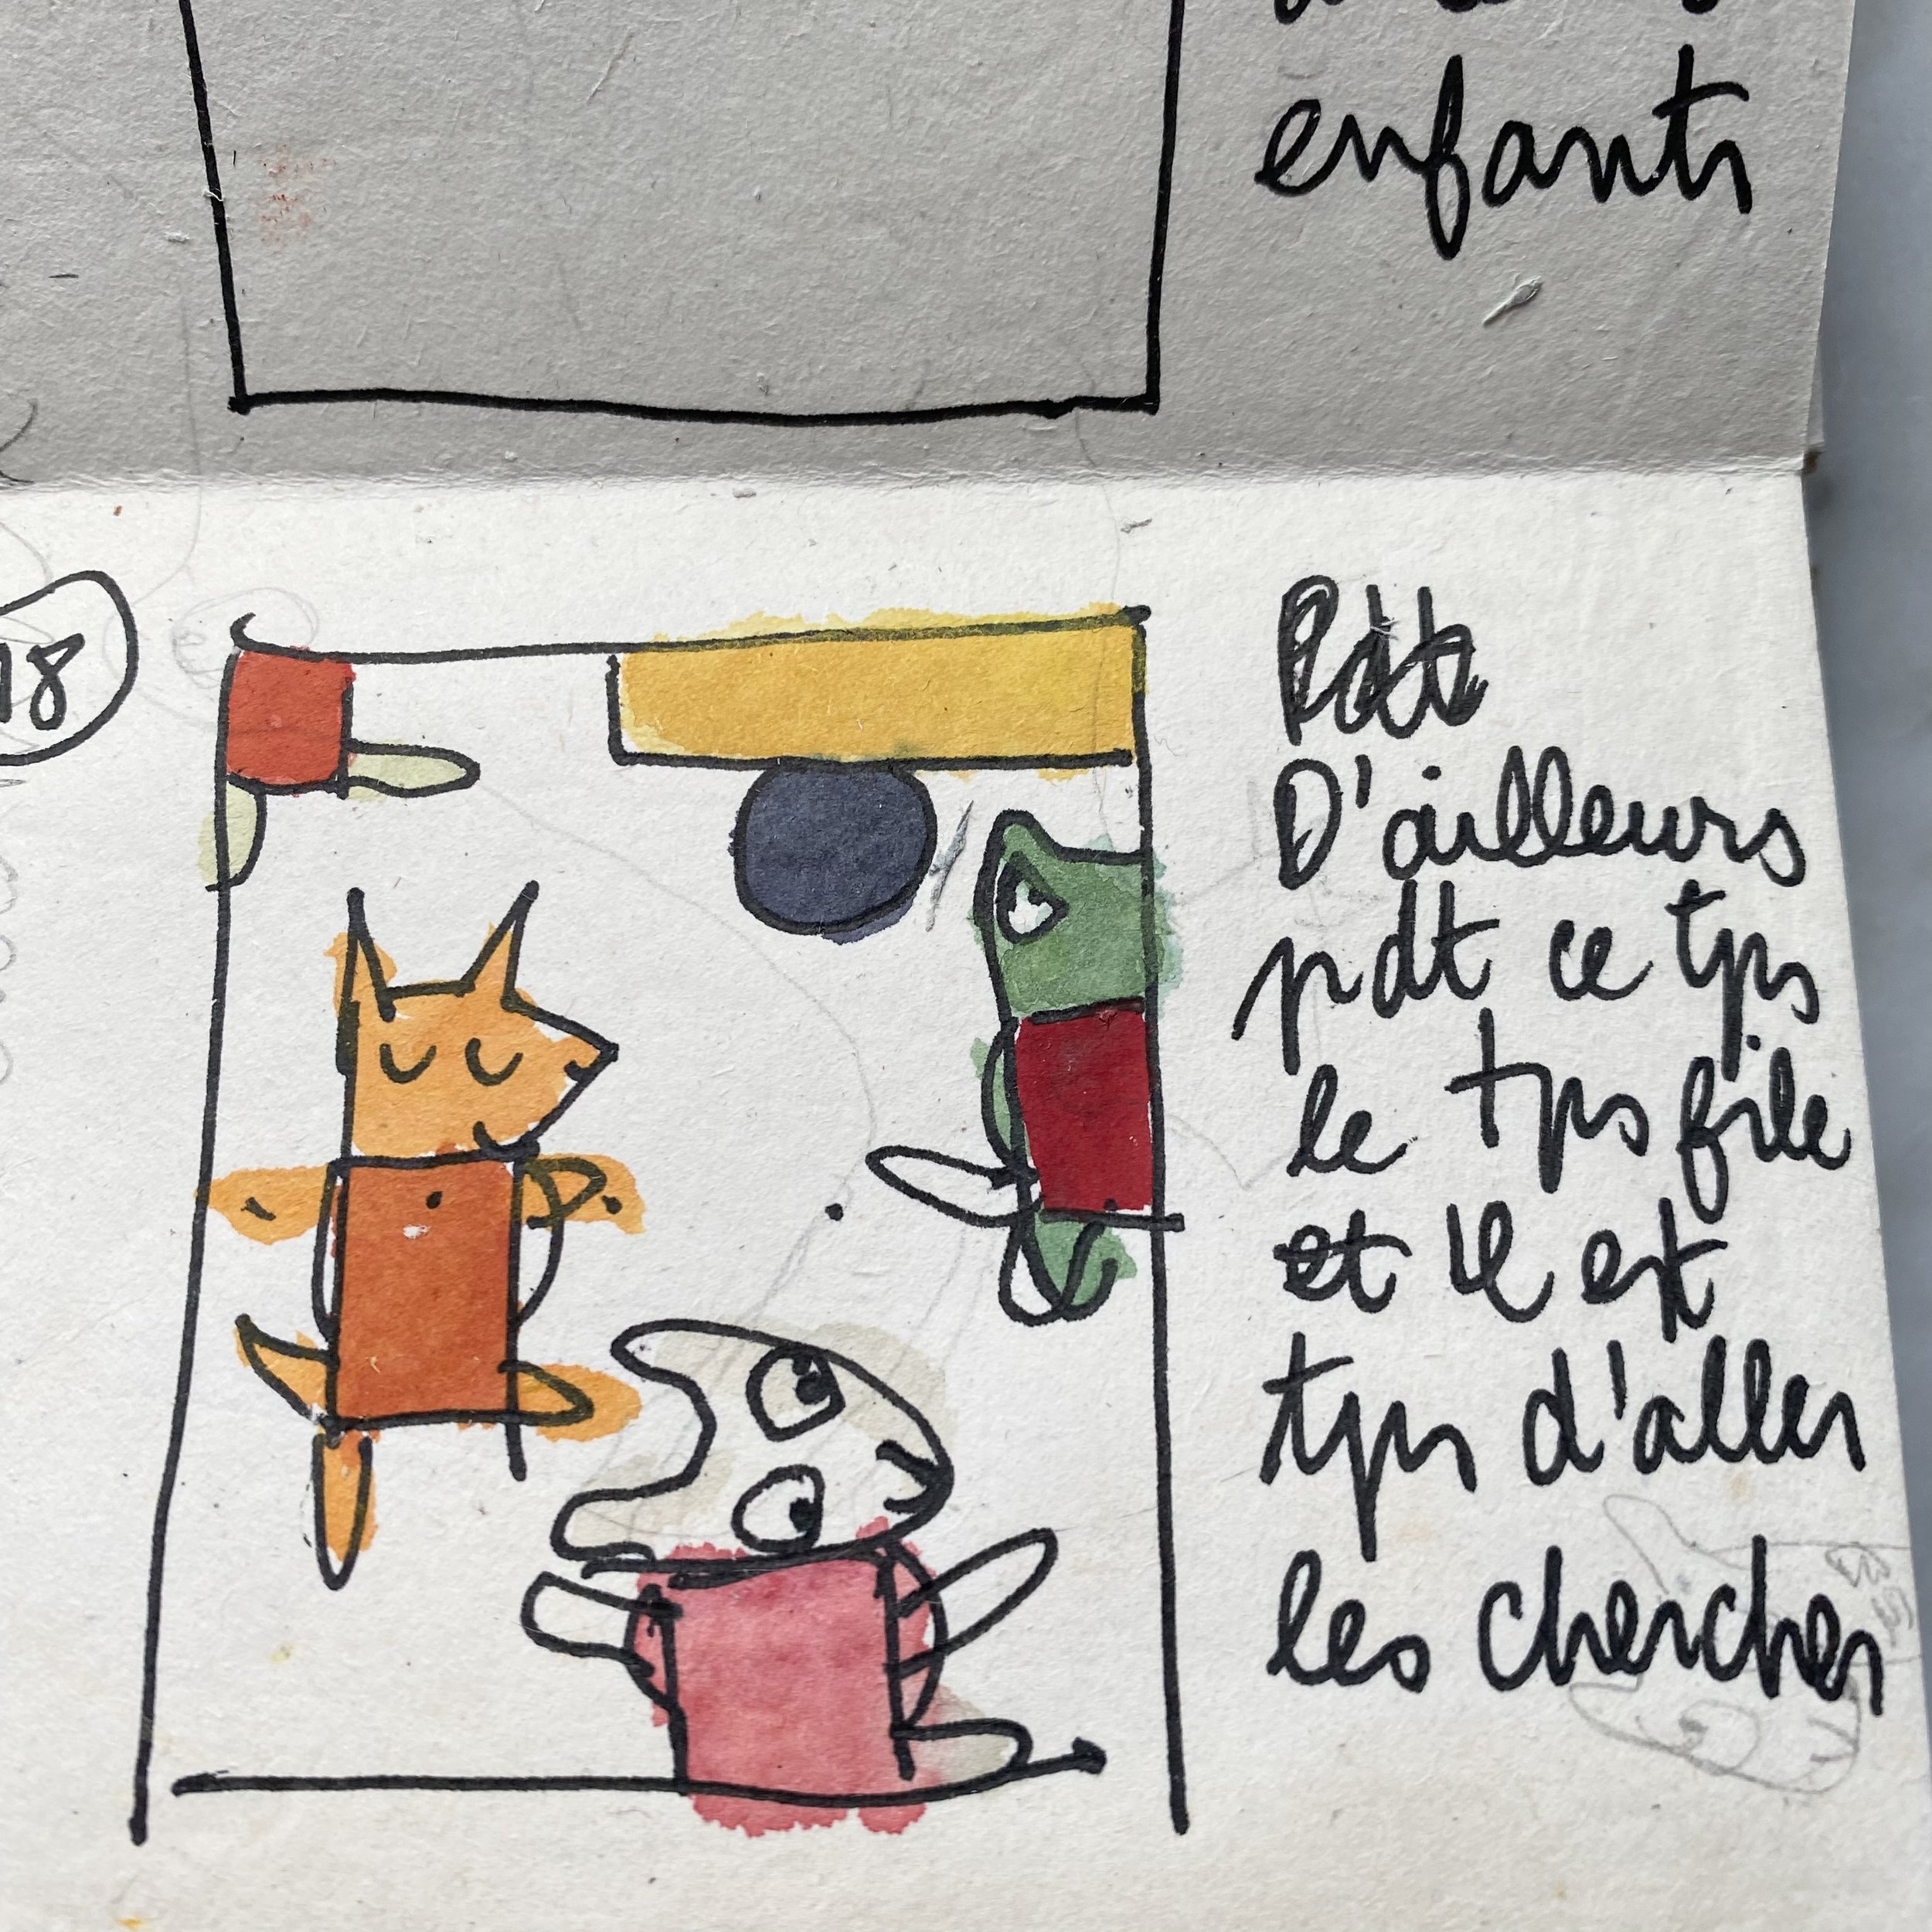 enfants
18
D'ailleurs
pdt ce tps
le tps file
et il est
tps d'aller
les chercher